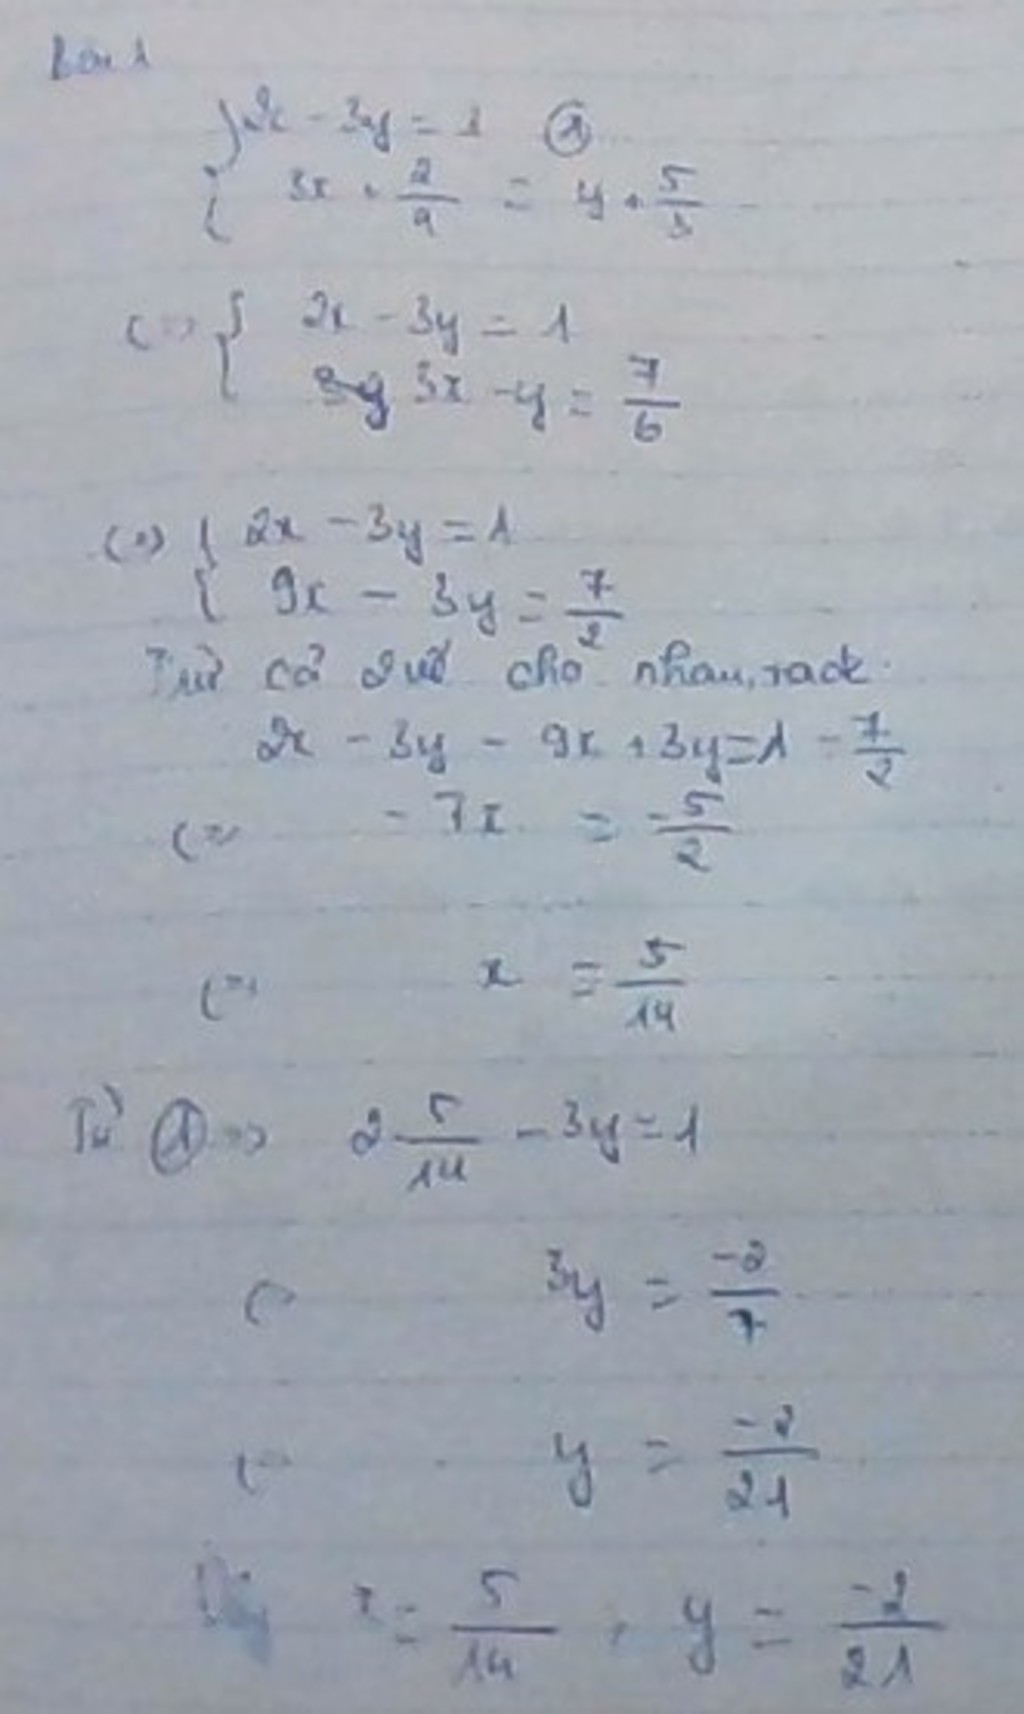 Bài 1
{ 2x - 3y = 1 ①
{ 3x + 2/9 = y + 5/3
(=) { 2x - 3y = 1
{ 3x - y = 7/6
(=) { 2x - 3y = 1
{ 9x - 3y = 7/2
Trừ cả 2 vế cho nhau, ta đc
2x - 3y - 9x + 3y = 1 - 7/2
(=) - 7x = -5/2
(=) x = 5/14
Từ ① => 2 5/14 - 3y = 1
(= 3y = -2/7
(= y = -2/21
x = 5/14 , y = -2/21